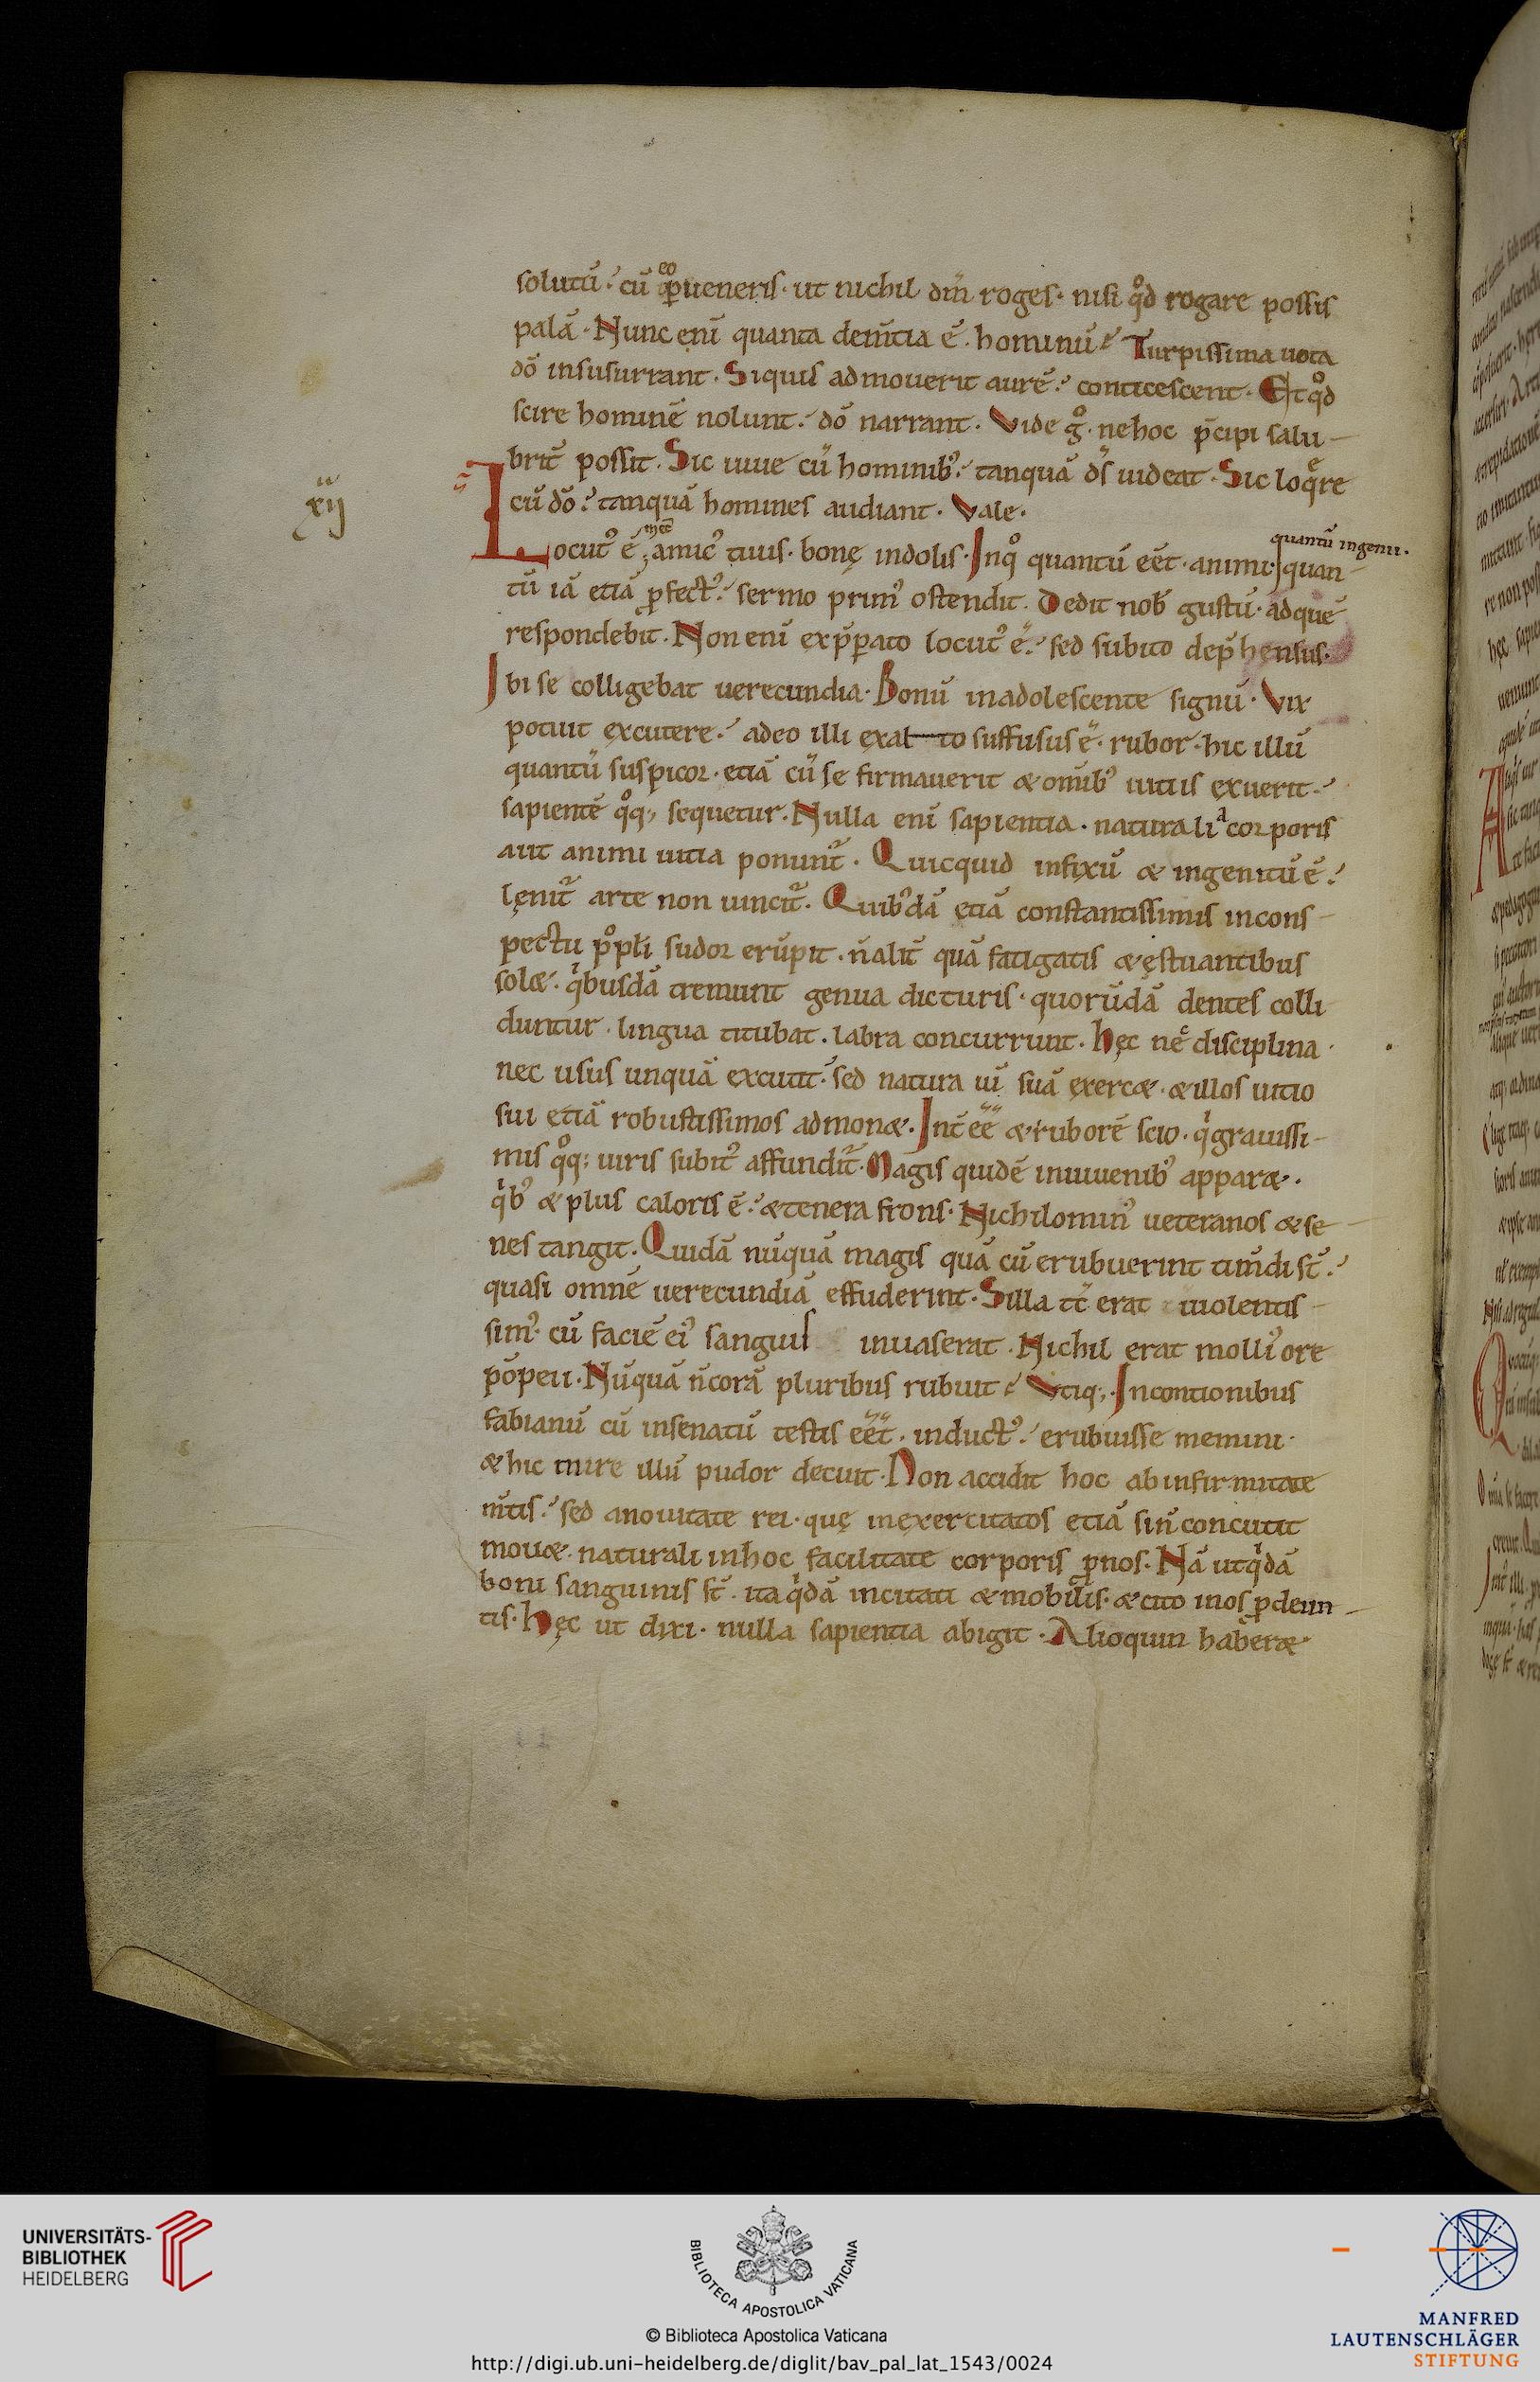 solutū. cū eo ꝑueneris. ut nichil dm̄ roges. nisi qͦd rogare possis
palā. Nunc eni̅ quanta dem̄tia ē. hominū. Turpissima uota
dō insusurrant. Siquis admouerit aurē. conticescent. Et qͦd
scire hominē nolunt. dō narrant. Vide gͦ. nehoc p̄cipi salu-
brit̄ possit. Sic uiue cū hominibꝰ. tanquā ds̄ uideat. Sic loq̄re
cū dō. tanquā homines audiant. Vale.
xij
Locutꝰ ē mec̄ amicꝰ tuus. bonę indolis. Inqͦ quantū eēt. animi. quantū ingenii. quan-
tū iā etiā ꝓfectꝰ. sermo primꝰ ostendit. Dedit nob̄ gustū. adquē
respondebit. Non eni̅ exp̄parato locutꝰ ē. sed subito dep̄hensus.
Ibi se colligebat uerecundia. Bonū inadolescente signū. Vix
potuit excutere. adeo illi exalto suffusus ē. rubor. hic illū
quantū suspicor. etiā cū se firmauerit & om̄ibꝰ uitiis exuerit.
sapientē qͦq; sequetur. Nulla eni̅ sapientia. naturalia corporis
aut animi uitia ponunt᷑. Quicquid infixū & ingenitū ē.
lęnit᷑ arte non uincit᷑. Quibꝰdā etiā constantissimis incons-
pectu pͦpl̄i sudor erūpit. n̄ alit̄ quā fatigatis & ęstuantibus
sol&. qͥbusdā tremunt genua dicturis. quorūdā dentes colli
duntur. lingua titubat. labra concurrunt. hęc nec̄ disciplina.
nec usus unquā excutit. sed natura uī suā exerc&. & illos uitio
sui etiā robustissimos admon&. Int̄ eē & ruborē scio. qͥ grauissi-
mis qͦq; uiris subitꝰ affundit᷑. Magis quidē iniuuenibꝰ appar&.
qͥbꝰ & plus caloris ē. & tenera frons. Nichilominꝰ ueteranos & se-
nes tangit. Quidā nūquā magis quā cū erubuerint tim̄di st̄.
quasi omnē uerecundiā effuderint. Silla tc̄ erat uiolentis-
simꝰ. cū faciē eiꝰ sanguis inuaserat. Nichil erat molliꝰ ore
pōpeii. Nūquā n̄ corā pluribus rubuit. Vtiq;. Incontionibus
fabianū cū insenatū testis eēt. inductꝰ. erubuisse memini.
& hic mire illū pudor decuit. Non accidit hoc abinfirmitate
m̄tis. sed anouitate rei. quę inexercitatos etiā sin̄ concutit
mou&. naturali inhoc facilitate corporis ꝓnos. Nā utqͥdā
boni sanguinis st̄. ita qͥdā incitati & mobilis. & cito inos ꝓdeun-
tis. Hęc ut dixi. nulla sapientia abigit. Alioquin haber&
UNIVERSITÄTS-
BIBLIOTHEK
HEIDELBERG
BIBLIOTECA APOSTOLICA VATICANA
© Biblioteca Apostolica Vaticana
http://digi.ub.uni-heidelberg.de/diglit/bav_pal_lat_1543/0024
MANFRED
LAUTENSCHLÄGER
STIFTUNG